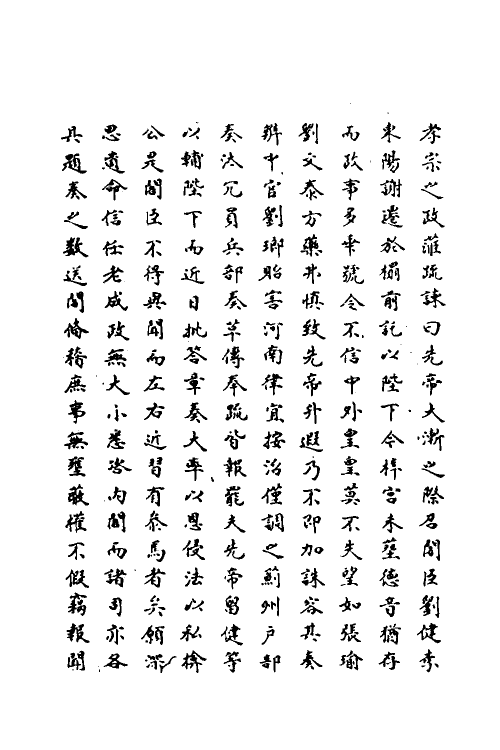 孝宗之政蕹疏諫曰先帝大漸之際召閣臣劉健李
東陽謝遷於榻前託以陛下今梓宮未塟德音猶存
而政事多乖號令不信中外皇皇莫不失望如張瑜
劉文泰方藥弗慎致先帝升遐乃不即加誅容其奏
辨中官劉瑯貽害河南律宜按治僅調之薊州户部
奏汰冗員兵部奏革傳奉疏皆報罷夫先帝畱健等
以輔陛下而近日批答章奏大率以恩侵法以私揜
公是閣臣不得與聞而左右近習有叅焉者矣願深
思遺命信任老成政無大小悉咨內閣而諸司亦各
具題奏之數送閣俻稽庶事無壅蔽權不假竊報聞